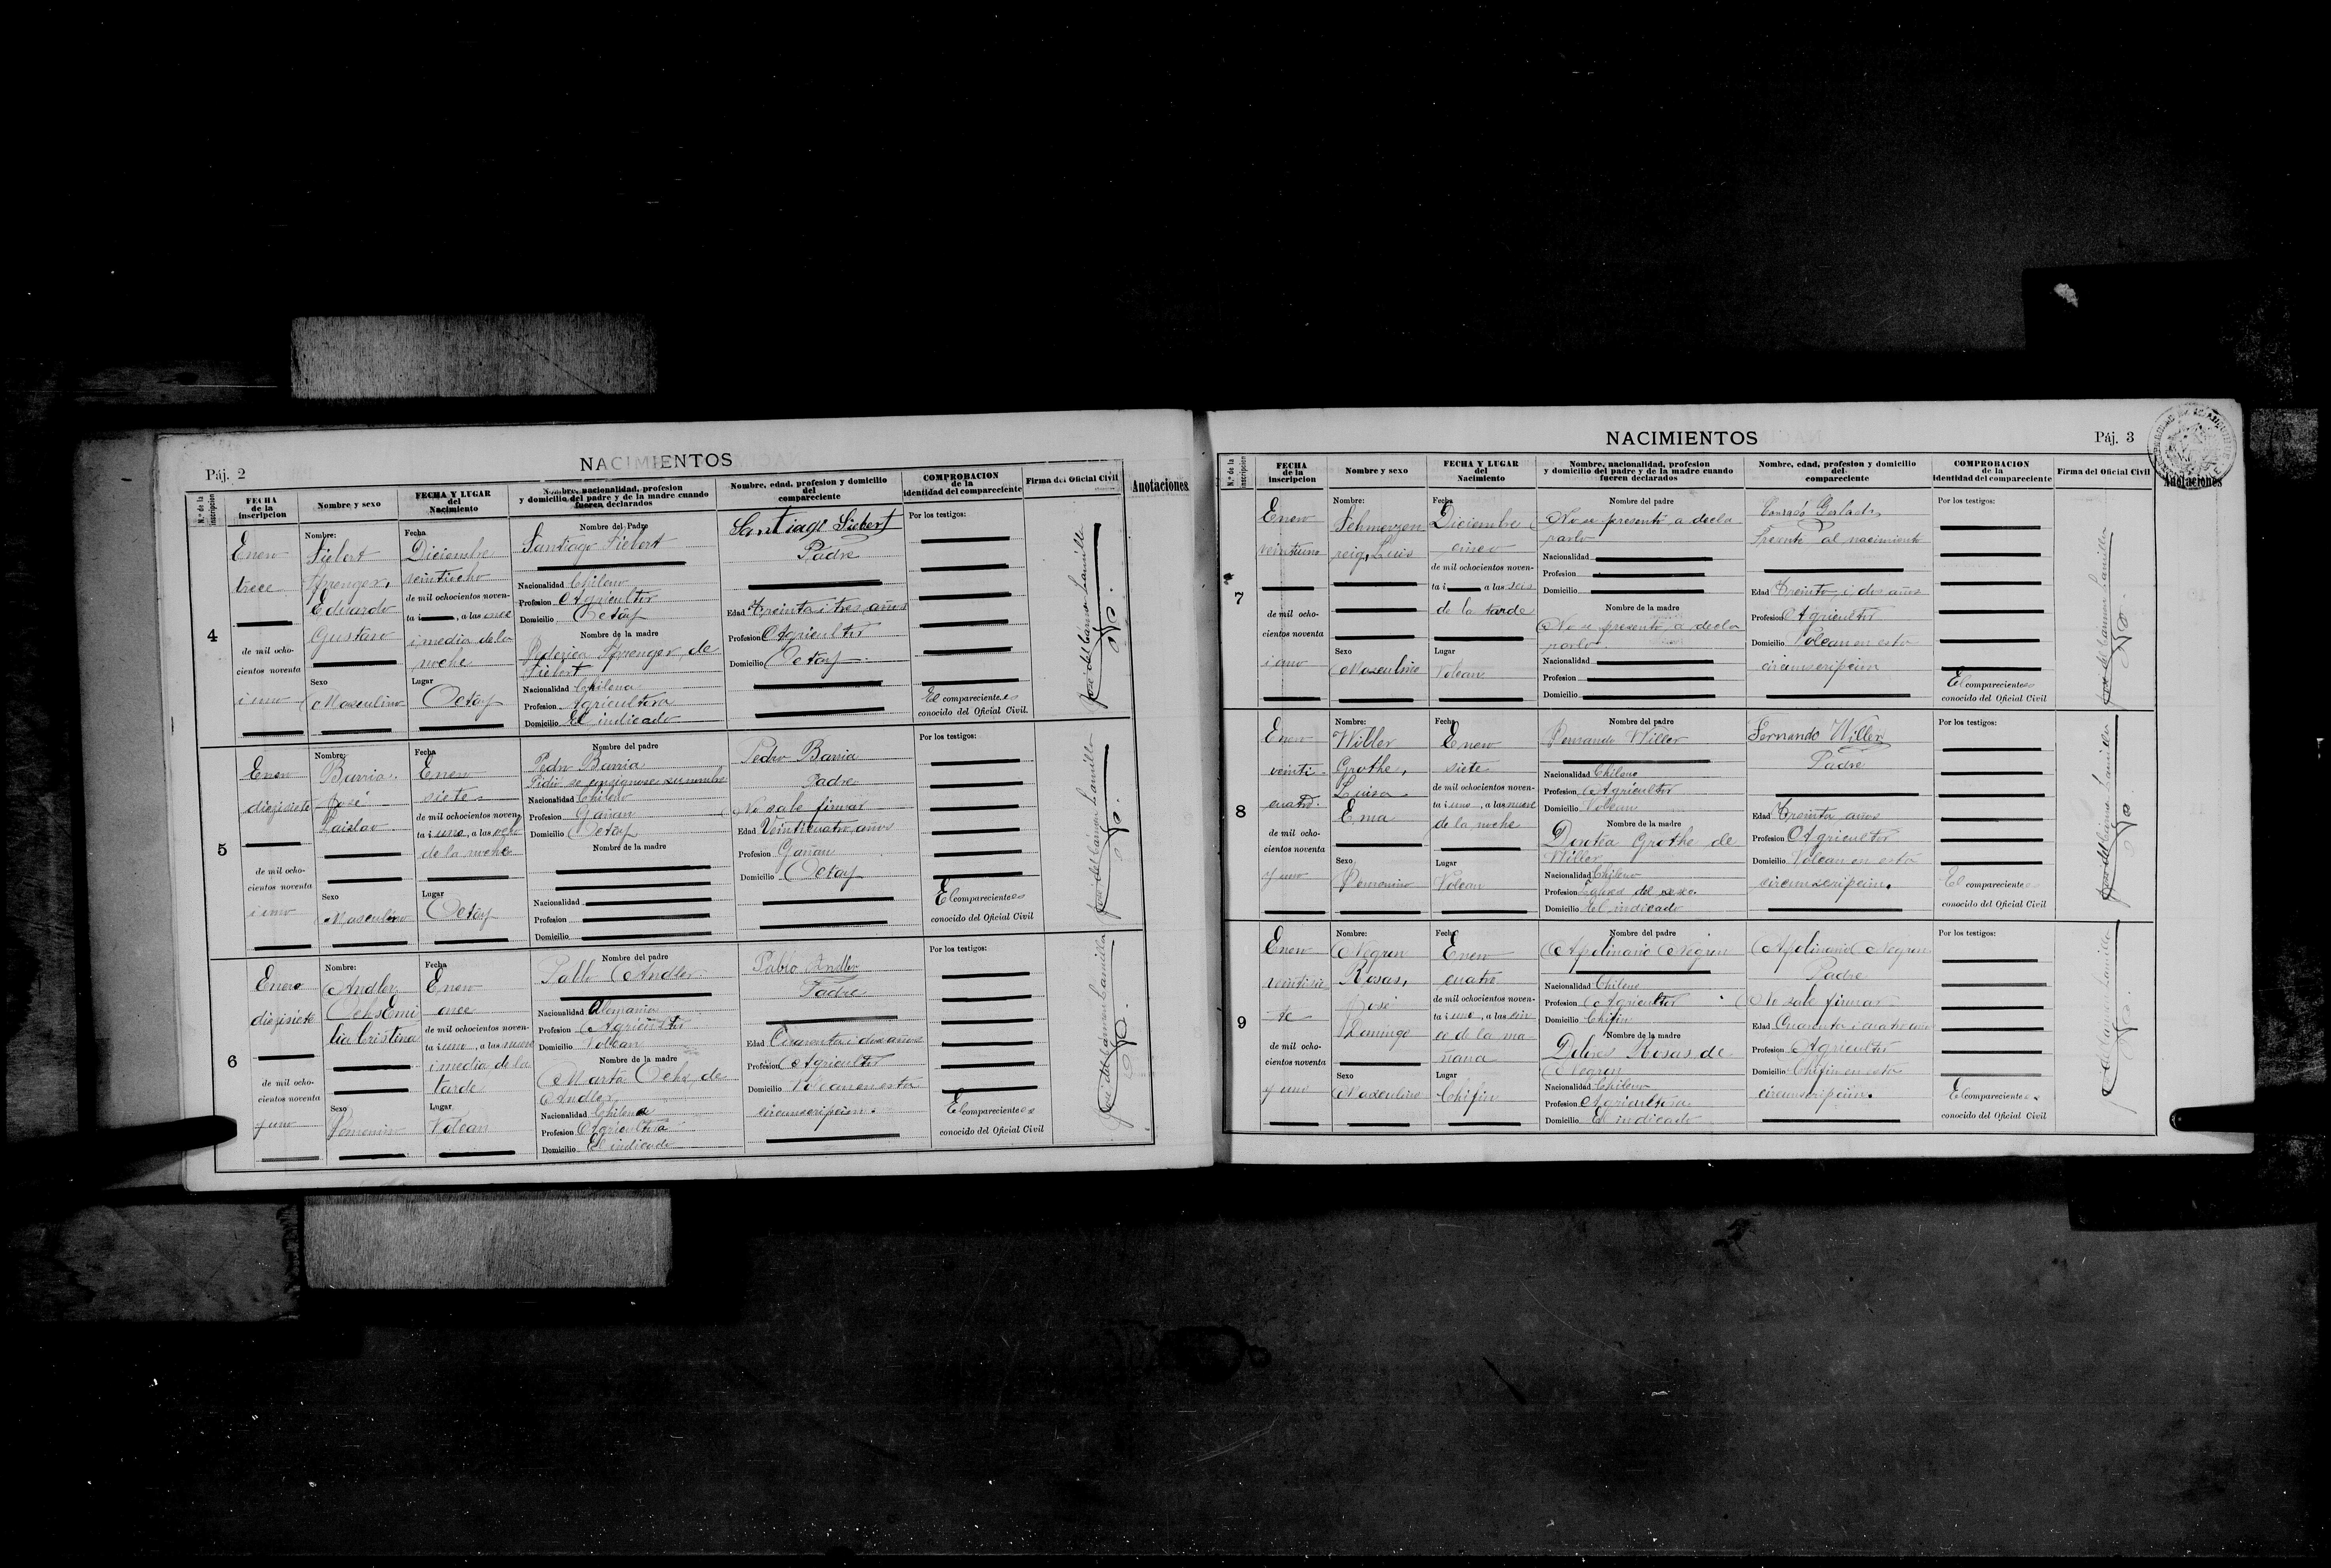 Páj. 2
NACIMIENTOS
N.º de la inscripcion
FECHA
de la
inscripcion
Nombre y sexo
FECHA Y LUGAR
del
Nacimiento
Nombre, nacionalidad, profesion
y domicilio del padre y de la madre cuando
fueren declarados
Nombre, edad, profesion y domicilio
del
compareciente
COMPROBACION
de la
identidad del compareciente
Firma del Oficial Civil
Anotaciones
4
Enero
trece
de mil ocho-
cientos noventa
i uno
Nombre:
Siebert
Sprenger,
Eduardo
Gustavo
Sexo
Masculino
Fecha
Diciembre
veintiocho
de mil ochocientos noven-
ta i , a las once
i media de la
noche
Lugar
Octay
Nombre del Padre
Santiago Siebert
Nacionalidad Chileno
Profesion Agricultor
Domicilio Octay
Nombre de la madre
Federica Sprenger de
Siebert
Nacionalidad Chilena
Profesion Agricultora
Domicilio El indicado
Santiago Siebert
Padre
Edad Treinta i tres años
Profesion Agricultor
Domicilio Octay
Por los testigos:
El compareciente es
conocido del Oficial Civil.
José del Carmen
5
Enero
diezisiete
de mil ocho-
cientos noventa
i uno
Nombre:
Barria,
José
Sexo
Masculino
Fecha
Enero
siete
de mil ochocientos noven-
ta i uno, a las ocho
de la noche
Lugar
Octay
Nombre del padre
Pedro Barria
Pidió se consignase su nombre
Nacionalidad Chileno
Profesion Gañan
Domicilio Octay
Nombre de la madre
Nacionalidad
Profesion
Domicilio
Pedro Barria
Padre
No sabe firmar
Edad Veinticuatro años
Profesion Gañan
Domicilio Octay
Por los testigos:
El compareciente es
conocido del Oficial Civil
José del Carmen
6
Enero
diezisiete
de mil ocho-
cientos noventa
y uno
Nombre:
Andler
Ochs Emi
lia Cristina
Sexo
Femenino
Fecha
Enero
once
de mil ochocientos noven-
ta i uno, a las nueve
i media de la
tarde
Lugar
Volcan
Nombre del padre
Pablo Andler
Nacionalidad Alemania
Profesion Agricultor
Domicilio Volcan
Nombre de la madre
Marta Ochs de
Andler
Nacionalidad Chilena
Profesion Agricultora
Domicilio El indicado
Pablo Andler
Padre
Edad Cuarenta i dos años
Profesion Agricultor
Domicilio Volcan en esta
circunscripcion.
Por los testigos:
El compareciente es
conocido del Oficial Civil
José del Carmen
NACIMIENTOS
Páj. 3
N.º de la inscripcion
FECHA
de la
inscripcion
Nombre y sexo
FECHA Y LUGAR
del
Nacimiento
Nombre, nacionalidad, profesion
y domicilio del padre y de la madre cuando
fueren declarados
Nombre, edad, profesion y domicilio
del
compareciente
COMPROBACION
de la
identidad del compareciente
Firma del Oficial Civil
Anotaciones
7
Enero
veintiuno
de mil ocho-
cientos noventa
i uno
Nombre:
Luis
Sexo
Masculino
Fecha
Diciembre
cinco
de mil ochocientos noven-
ta i a las seis
de la tarde
Lugar
Volcan
Nombre del padre
No se presentó a decla
rarlo
Nacionalidad
Profesion
Domicilio
Nombre de la madre
No se presentó a decla
rarlo
Nacionalidad
Profesion
Domicilio
Presente al nacimiento
Edad Treinta i dos años
Profesion Agricultor
Domicilio Volcan en esta
circunscripcion
Por los testigos:
El compareciente es
conocido del Oficial Civil
José del Carmen
8
Enero
veinti-
cuatro.
de mil ocho-
cientos noventa
y uno
Nombre:
Willer
Grothe,
Luisa
Ema
Sexo
Femenino
Fecha
Enero
siete
de mil ochocientos noven-
ta i uno, a las nueve
de la noche
Lugar
Volcan
Nombre del padre
Fernando Willer
Nacionalidad Chileno
Profesion Agricultor
Domicilio Volcan
Nombre de la madre
Dorotea Grothe de
Willer
Nacionalidad Chilena
Profesion Labres del sexo.
Domicilio El indicado
Fernando Willer
Padre
Edad Treinta años
Profesion Agricultor
Domicilio Volcan en esta
circunscripcion.
Por los testigos:
El compareciente es
conocido del Oficial Civil
José del Carmen
9
Enero
veintisie
te
de mil ocho-
cientos noventa
y uno
Nombre:
Negron
Rosas,
José
Domingo
Sexo
Masculino
Fecha
Enero
cuatro
de mil ochocientos noven-
ta i uno, a las cin
co de la ma-
ñana
Lugar
Chifin
Nombre del padre
Apolinario Negron
Nacionalidad Chileno
Profesion Agricultor
Domicilio Chifin
Nombre de la madre
Dolores Rosas de
Negron
Nacionalidad Chilena
Profesion Agricultora
Domicilio El indicado
Apolinario Negron
Padre
No sabe firmar
Edad Cuarenta i cuatro años
Profesion Agricultor
Domicilio Chifin en esta
circunscripcion.
Por los testigos:
El compareciente es
conocido del Oficial Civil
José del Carmen